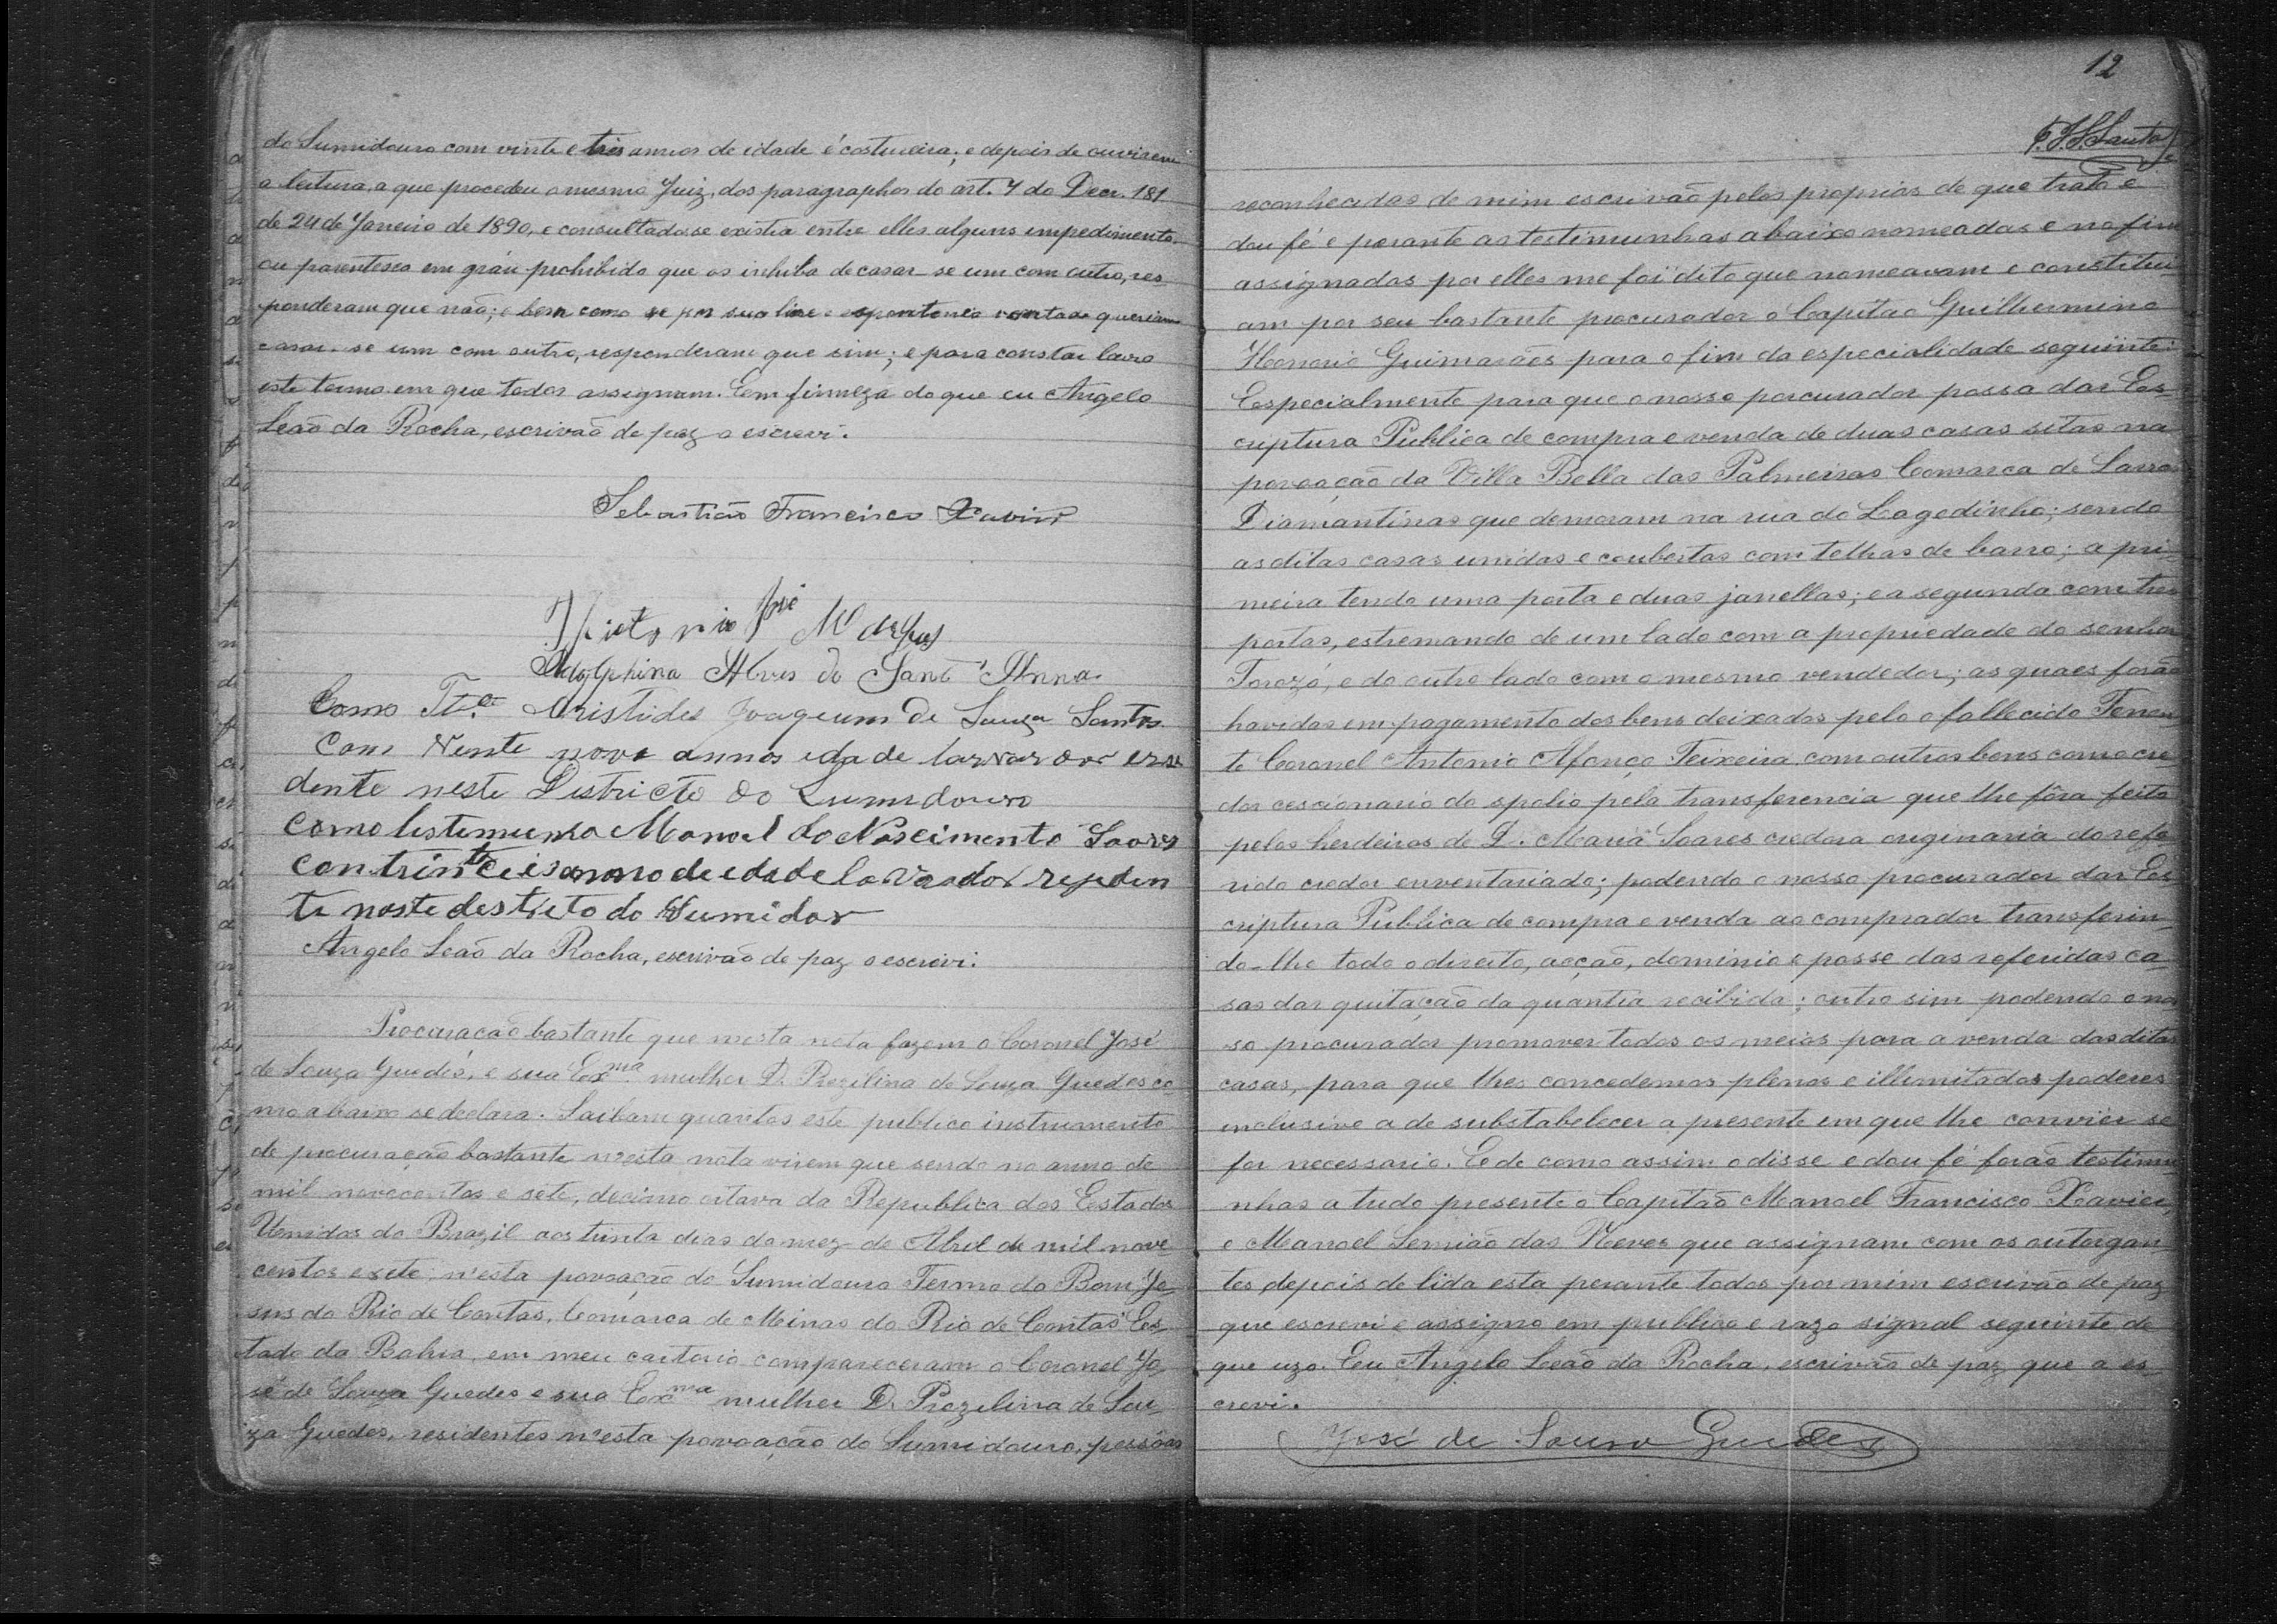 do Sumidouro com vinte e tres annos de idade é costureira; e depois de ouvirem
a leitura, a que procedeu o mesmo Juiz, dos paragraphos do art. 7 do Decr. 181
de 24 de Janeiro de 1890, e consultado se existia entre elles alguns impedimento
ou parentesco em gráu prohibido que os inhiba de casar-se um com outro, res
ponderam que não; e bem como se por sua livre e espontonea vontade queriam
casar-se um com outro, responderam que sim; e para constar lavro
este termo em que todos assignam. Em firmeza do que eu Angelo
Leão da Rocha, escrivão de paz o escrevi.
Sebastião Francisco Xavier
José
Adolphina Alves de Sant'Anna.
Como Aristides Joaquim de Souza Santos
Com Vente nove annos idade larvardor
dente neste Districto do Sumidouro
Como testemunha Manoel do Nascimento Soares
com trinta annos de edade lavrador
te neste destreto do Sumidor
Angelo Leão da Rocha, escrivão de paz o escrevi.
Procuração bastante que nesta nota fazem o Coronel José
de Souza Guedes, e sua Ex.ma mulher D. Prezilina de Souza Guedes co-
mo abaixo se declara. Saibam quantos este publico instrumento
de procuração bastante nesta nota virem que sendo no anno de
mil novecentos e sete, decimo oitavo da Republica dos Estados
Unidos do Brazil aos trinta dias do mez de Abril de mil nove
centos e sete, n'esta povoação do Sumidouro Termo do Bom Je-
sus do Rio de Contas, Comarca de Minas do Rio de Contas Es-
tado da Bahia, em meu cartorio compareceram o Coronel Jo-
sé de Souza Guedes e sua Exma mulher D. Prezilina de Sou-
za Guedes, residentes n'esta povoação do Sumidouro, pessôas
12
Santos
reconhecidas de mim escrivão pelos proprios de que trato e
dou fé e perante as testimunhas abaixo nomeadas e no fim
assignados por elles me foi dito que nomeavam e constitui-
am por seu bastante procurador o Capitão Guilhermino
Honorio Guimarães para o fim da especialidade seguinte:
Especialmente para que o nosso porcurador possa dar Es-
criptura Publica de compra e venda de duas casas sitas na
povoação da Villa Bella das Palmeiras Comarca de Lavras
Diamantinas que demoram na rua do Lagedinho; sendo
as ditas casas unidas e coubertas com telhas de barro; a pri-
meira tendo uma porta e duas janellas; e a segunda com tres
portas, estremando de um lado com a propriedade do senhor
Torozó, e do outro lado com o mesmo vendedor; as quaes forão
havidas em pagamento dos bens deixados pelo o fallecido Tenen
te Coronel Antonio Afonço Teixeira, com outros bens como cre
dor cescionario do spolio pela transferencia que lhe fôra feita
pelos herdeiros de D. Maria Soares credora originaria do refe
rido credor enventariado; podendo o nosso procurador dar Es-
criptura Publica de compra e venda ao comprador transferin-
do-lhe todo o direito, acção, dominio e posse das referidas ca-
sas dar quitação da quantia recibida; outro sim podendo o nos
so procurador promover todos os meios para a venda das ditas
casas, para que lhes concedemos plenos e illimitados poderes
inclusive a de substabelecer a presente em que lhe convier se
for necessario. E de como assim o disse e dou fé forão testimu
nhas a tudo presente o Capitão Manoel Francisco Xavier,
e Manoel Semião das Neves que assignam com os outorgan
tes depois de lida esta perante todos por mim escrivão de paz
que escrevi e assigno em publico e razo signal seguinte de
que uzo. Eu Angelo Leão da Rocha, escrivão de paz que a es-
crevi.
José de Souza Guedes